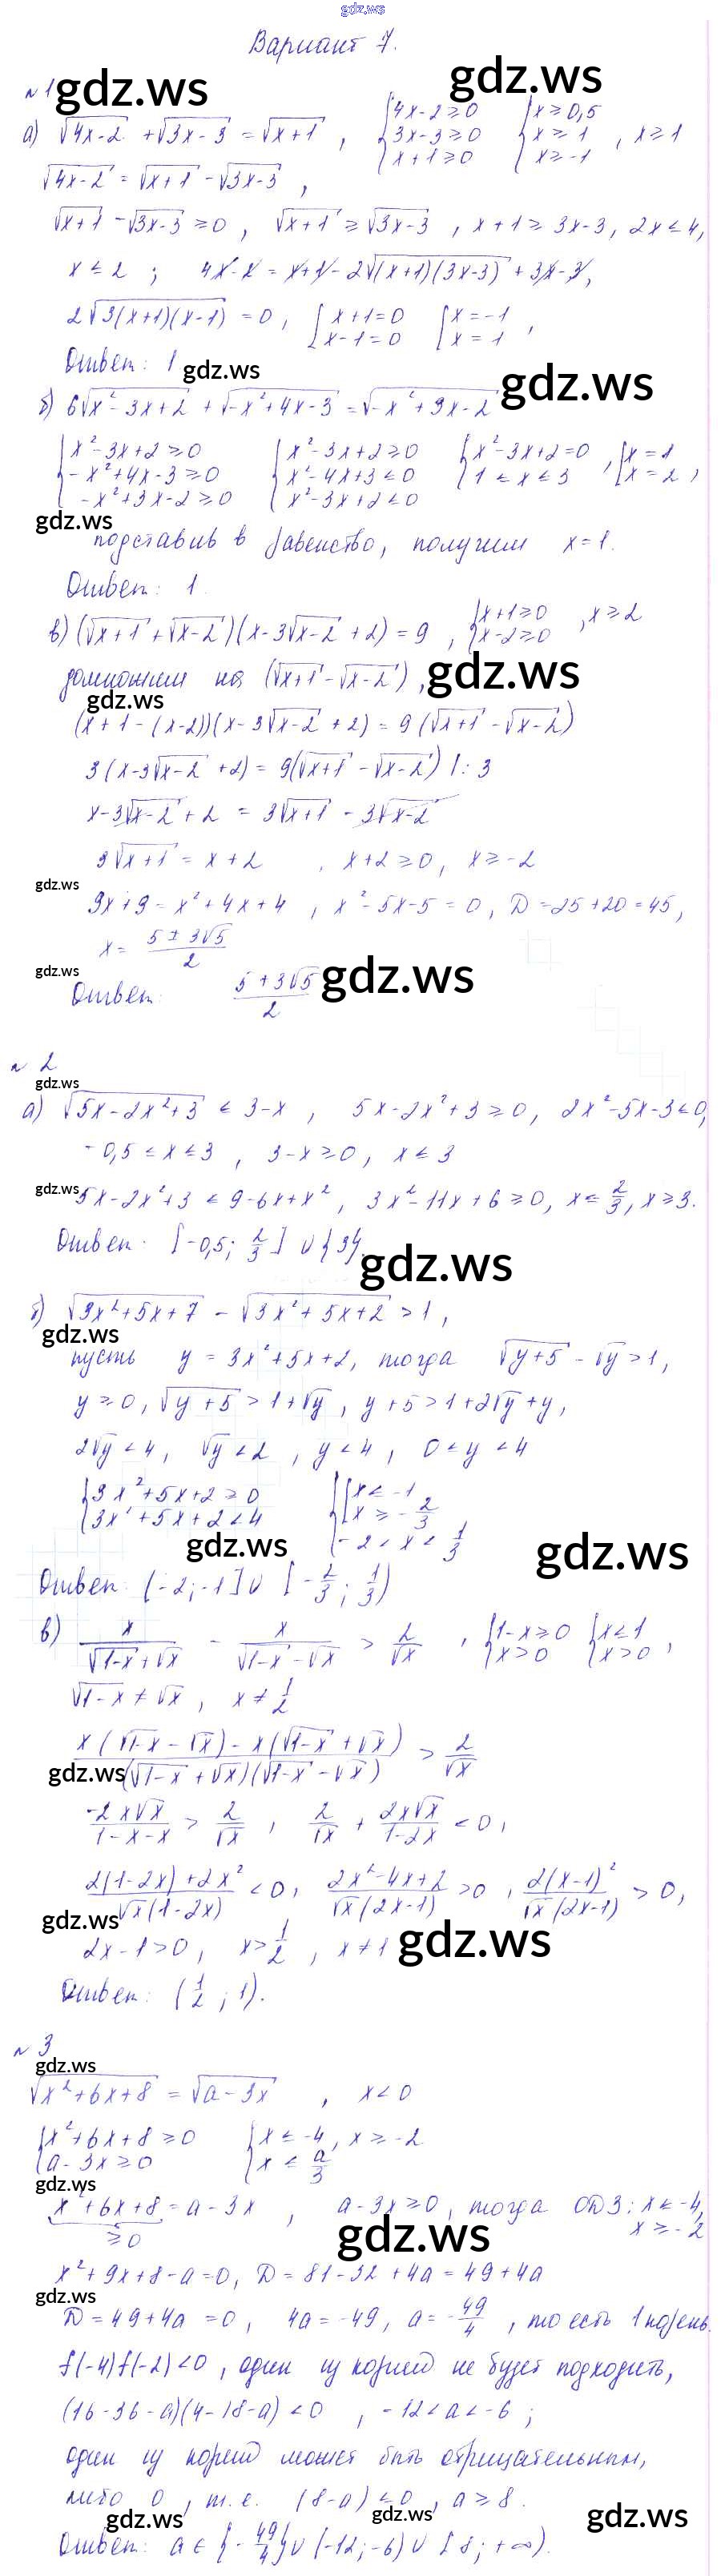 gdz.ws
Вариант 7.
№1 gdz.ws gdz.ws
а) √(4x-2) + √(3x-3) = √(x+1), {4x-2≥0 {x≥0,5
{3x-3≥0 {x≥1, x≥1
{x+1≥0 {x≥-1
√(4x-2) = √(x+1) - √(3x-3),
√(x+1) - √(3x-3) ≥ 0, √(x+1) ≥ √(3x-3), x+1 ≥ 3x-3, 2x ≤ 4,
x ≤ 2; 4x-2 = x+1 - 2√((x+1)(3x-3)) + 3x-3,
2√(3(x+1)(x-1)) = 0, [x+1=0 [x=-1
[x-1=0 [x=1,
Ответ: 1 gdz.ws gdz.ws
б) 6√(x²-3x+2) + √(-x²+4x-3) = √(-x²+3x-2)
{x²-3x+2≥0 {x²-3x+2≥0 {x²-3x+2=0 [x=1
{-x²+4x-3≥0 {x²-4x+3≤0 {1≤x≤3, [x=2,
{-x²+3x-2≥0 {x²-3x+2≤0
gdz.ws
подставив в равенство, получим x=1.
Ответ: 1.
в) (√(x+1) + √(x-2))(x-3√(x-2)+2) = 9, {x+1≥0
{x-2≥0, x≥2
домножим на (√(x+1) - √(x-2)), gdz.ws
gdz.ws
(x+1-(x-2))(x-3√(x-2)+2) = 9(√(x+1) - √(x-2))
3(x-3√(x-2)+2) = 9(√(x+1) - √(x-2)) |:3
x-3√(x-2)+2 = 3√(x+1) - 3√(x-2)
3√(x+1) = x+2, x+2≥0, x≥-2
gdz.ws
9x+9 = x²+4x+4, x²-5x-5=0, D=25+20=45,
x = (5±3√5)/2
gdz.ws
Ответ: (5+3√5)/2 gdz.ws
№2
gdz.ws
а) √(5x-2x²+3) ≤ 3-x, 5x-2x²+3≥0, 2x²-5x-3≤0,
-0,5≤x≤3, 3-x≥0, x≤3
gdz.ws
5x-2x²+3 ≤ 9-6x+x², 3x²-11x+6≥0, x≤2/3, x≥3.
Ответ: [-0,5; 2/3] ∪ {3}. gdz.ws
б) √(3x²+5x+7) - √(3x²+5x+2) > 1,
gdz.ws
пусть y=3x²+5x+2, тогда √(y+5) - √y > 1,
y≥0, √(y+5) > 1+√y, y+5 > 1+2√y+y,
2√y < 4, √y < 2, y < 4, 0≤y<4
{3x²+5x+2≥0 {[x≤-1
{3x²+5x+2<4 {[x≥-2/3
{-2<x<1/3
gdz.ws gdz.ws
Ответ: (-2;-1] ∪ [-2/3; 1/3)
в) x/(√(1-x)+√x) - x/(√(1-x)-√x) > 2/√x, {1-x≥0 {x≤1
{x>0 {x>0,
√(1-x) ≠ √x, x ≠ 1/2
(x(√(1-x)-√x) - x(√(1-x)+√x))/((√(1-x)+√x)(√(1-x)-√x)) > 2/√x
gdz.ws
-2x√x/(1-x-x) > 2/√x, 2/√x + 2x√x/(1-2x) < 0,
(2(1-2x)+2x²)/(√x(1-2x)) < 0, (2x²-4x+2)/(√x(2x-1)) > 0, 2(x-1)²/(√x(2x-1)) > 0,
gdz.ws
2x-1>0, x>1/2, x≠1 gdz.ws
Ответ: (1/2; 1).
№3
gdz.ws
√(x²+6x+8) = √(a-3x), x<0
{x²+6x+8≥0 {x≤-4, x≥-2
{a-3x≥0 {x≤a/3
gdz.ws
x²+6x+8 = a-3x, a-3x≥0, тогда ОДЗ: x≤-4,
≥0 x≥-2
gdz.ws
x²+9x+8-a=0, D=81-32+4a=49+4a
gdz.ws
D=49+4a=0, 4a=-49, a=-49/4, то есть 1 корень.
f(-4)f(-2)<0, один из корней не будет подходить,
(16-36-a)(4-18-a)<0, -12<a<-6;
один из корней может быть отрицательным,
либо 0, т.е. (8-a)≤0, a≥8.
gdz.ws gdz.ws gdz.ws
Ответ: a∈{-49/4}∪(-12;-6)∪[8;+∞).